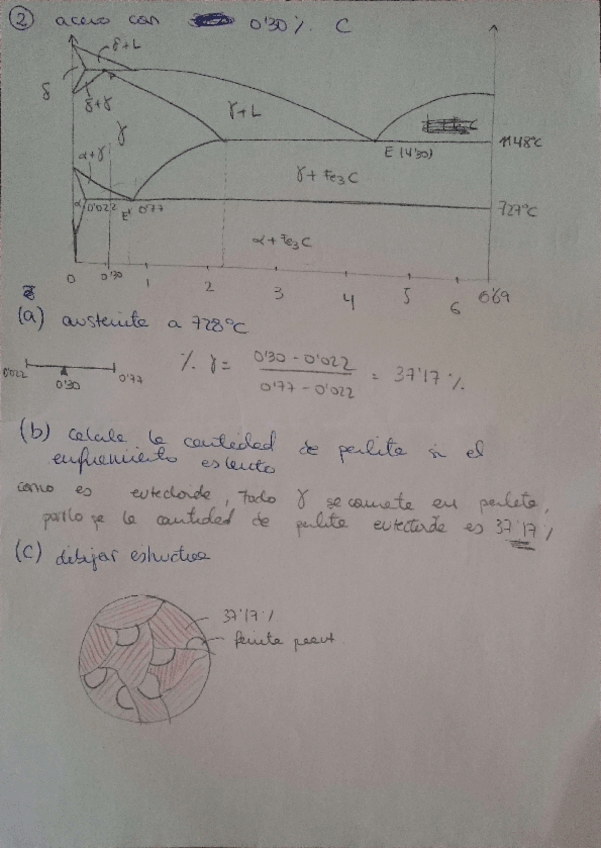 ② acero con 0'30 % C
δ+L
δ
δ+γ
γ
γ+L
E (4'30)
1148ºC
α+γ
γ + Fe3C
α 0'022
E' 0'77
727ºC
α + Fe3C
0 0'30 1 2 3 4 5 6 6'69
(a) austenite a 728ºC
0'022 0'30 0'77
% γ = 0'30 - 0'022 / 0'77 - 0'022 = 37'17 %
(b) calcula la cantidad de perlita si el
enfriamiento es lento
como es eutectoide, todo γ se convierte en perlita,
por lo que la cantidad de perlita eutectoide es 37'17 %
(c) dibujar estructura
37'17 %
ferrita proeut.